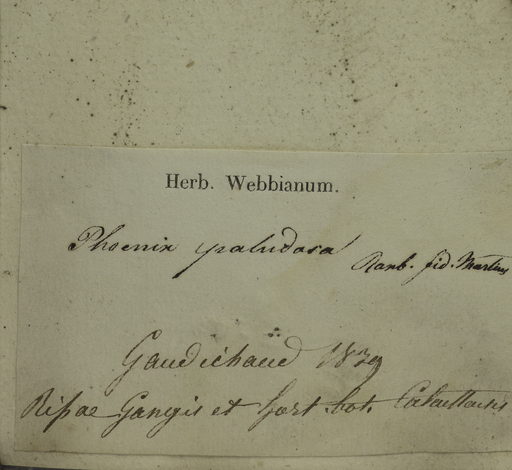 Herb. Webbianum.
Phoenix paludosa Roxb. fid. Martius
Gaudichaud 1839
Ripae Gangis et hort. bot. Calcuttensis